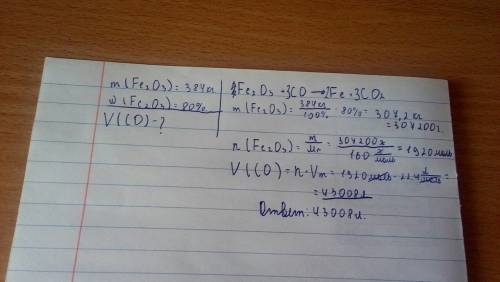 m(Fe2O3)=384кг
w(Fe2O3)=80%
V(CO)-?
Fe2O3 +3CO →2Fe+3CO2
m(Fe2O3)= 384кг/100% · 80%= 307,2кг
=307200г.
n(Fe2O3)= m/Mr = 307200г/160 г/моль = 1920моль
V(CO)=n·Vm=1920моль · 22,4 л/моль =
=43008л
Ответ: 43008л.